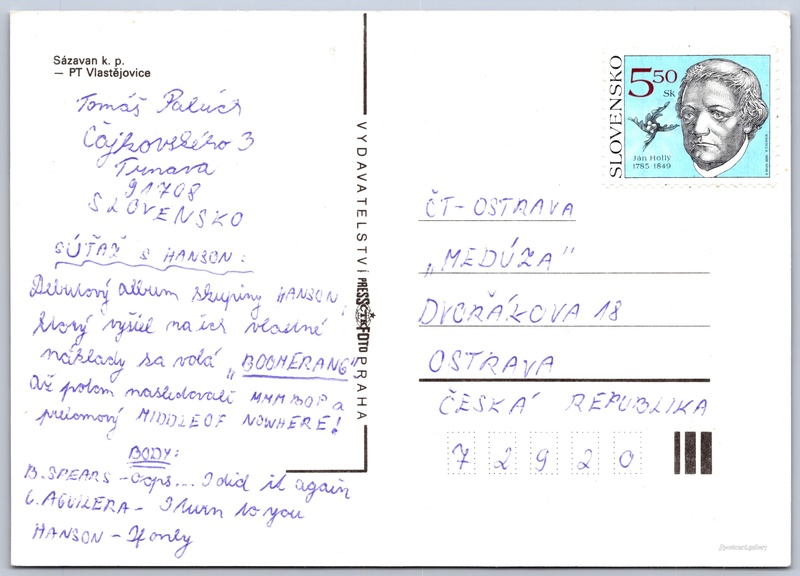 Sázavan k. p.
— PT Vlastějovice
Tomáš Palúch
Čajkovského 3
Trnava
91708
SLOVENSKO
SÚŤAŽ S HANSON:
Debutový album skupiny HANSON,
ktorý vyšiel na ich vlastné
náklady sa volá „BOOMERANG“
Až potom nasledovali MMMBOP a
prelomový MIDDLE OF NOWHERE!
BODY:
B. SPEARS – Oops... I did it again
C. AGUILERA – I turn to you
HANSON – If only
VYDAVATELSTVÍ PRESSFOTO PRAHA
SLOVENSKO
550
Sk
Ján Hollý
1785 1849
ČT-OSTRAVA
„MEDÚZA“
DVOŘÁKOVA 18
OSTRAVA
ČESKÁ REPUBLIKA
72920
postcard.gallery